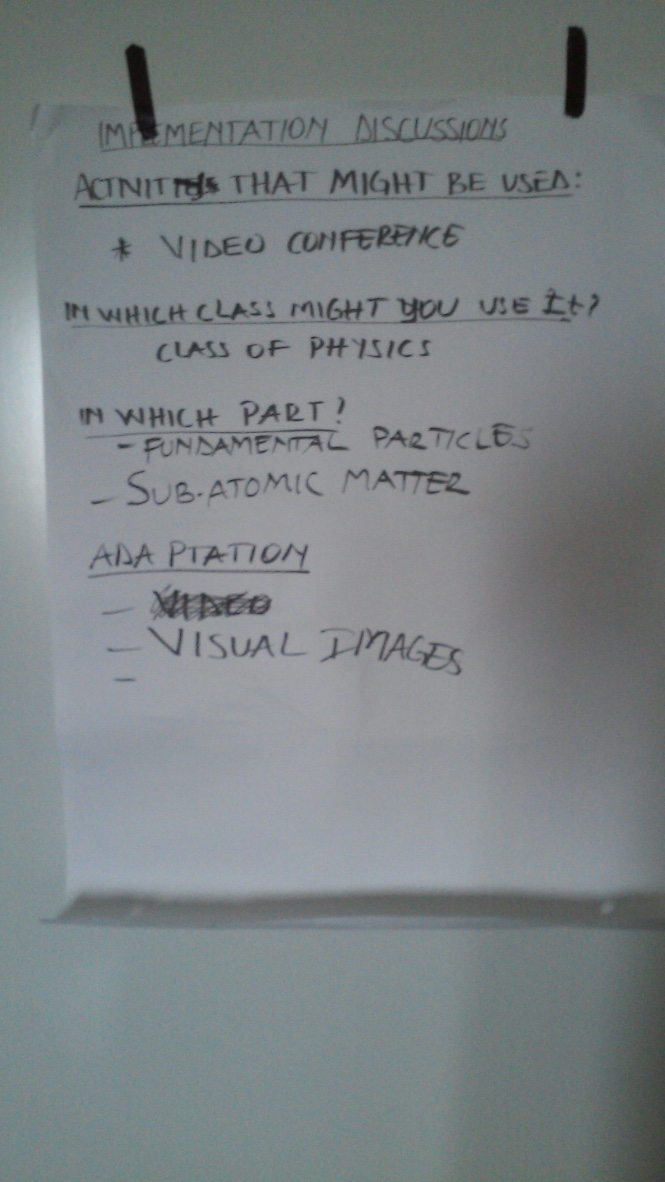 IMPLEMENTATION DISCUSSIONS
ACTIVITIES THAT MIGHT BE USED:
* VIDEO CONFERENCE
IN WHICH CLASS MIGHT YOU USE It?
CLASS OF PHYSICS
IN WHICH PART?
- FUNDAMENTAL PARTICLES
- SUB-ATOMIC MATTER
ADAPTATION
-
- VISUAL IMAGES
-